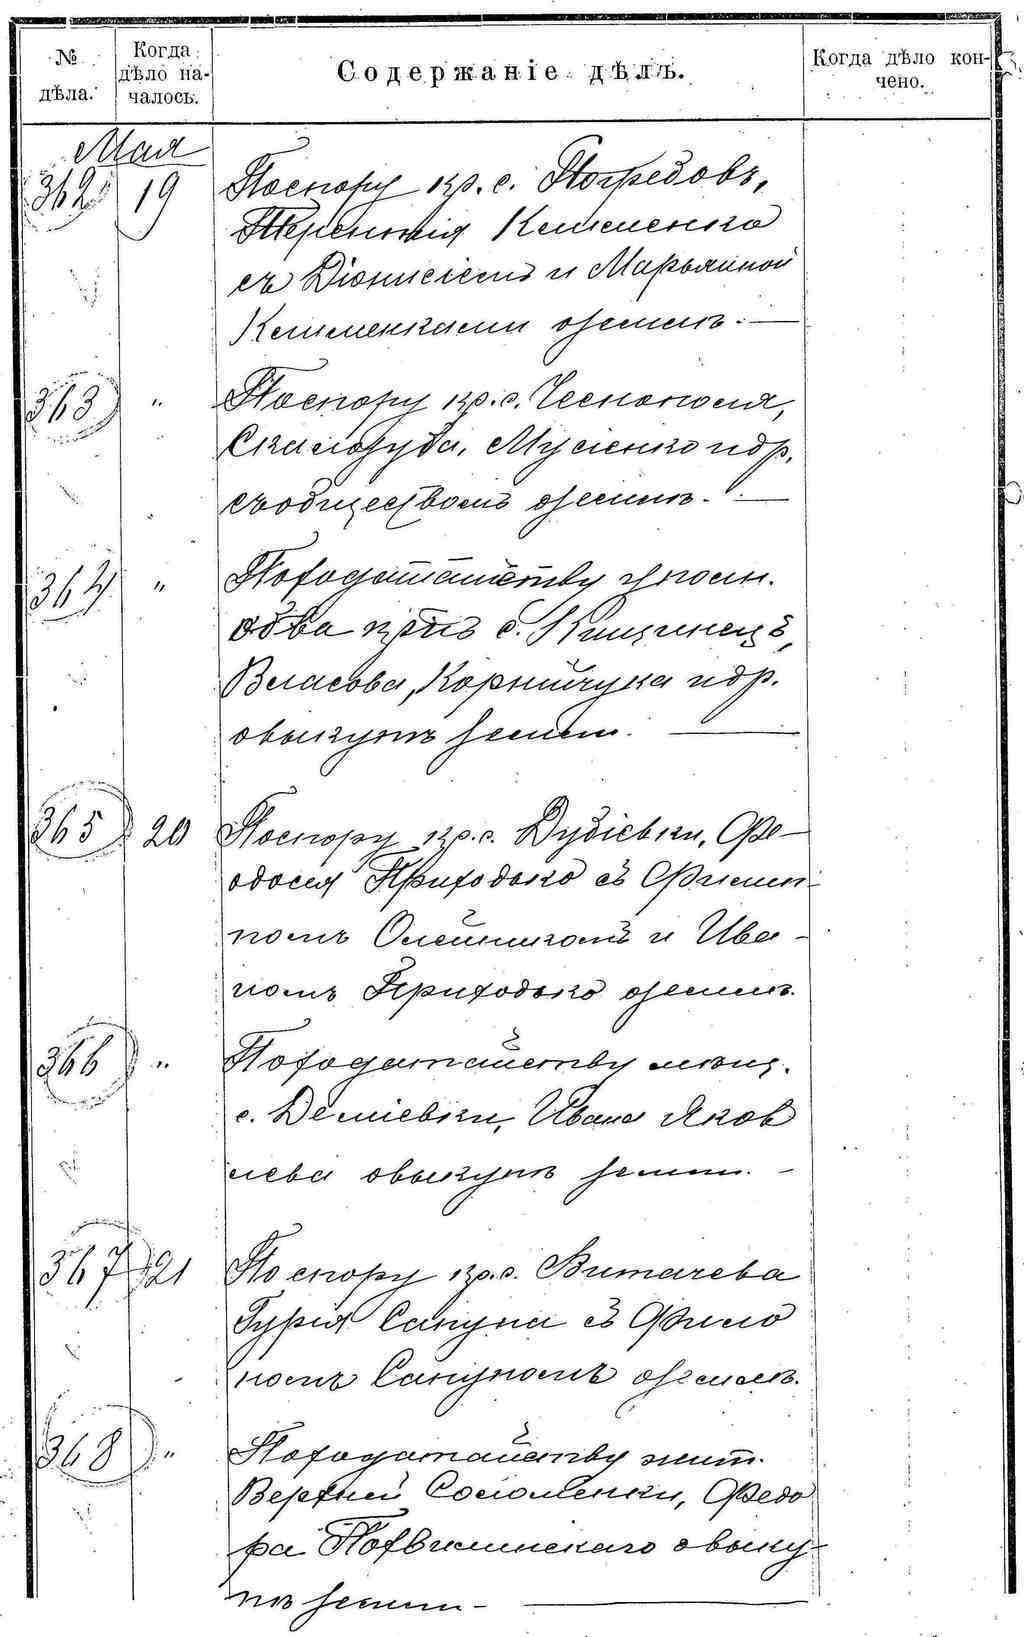 № дѣла.
Когда дѣло началось.
Содержаніе дѣлъ.
Когда дѣло кончено.
Мая
362 19 По спору кр. с. Погребовъ,
Терентія Кешменка
съ Діонисіемъ и Марьяной
Кешменками о землѣ. —
363 " По спору кр. с. Чеснополя,
Скалозуба, Мусіенко и др.
съ обществомъ о землѣ. —
364 " По ходатайству уполн.
об-ва кр-нъ с. Кищинецъ,
Власова, Корнійчука и др.
о выкупѣ земли. —
365 20 По спору кр. с. Дудіевки, Фе-
одосія Приходько съ Филип-
помъ Олейникомъ и Ива-
номъ Приходько о землѣ.
366 " По ходатайству мѣщ.
с. Деміевки, Ивана Яков
лева о выкупѣ земли. —
367 21 По спору кр. с. Витачева
Гурія Сапуна съ Фило
номъ Сапуномъ о землѣ.
368 " По ходатайству жит.
Верхней Соломенки, Федо
ра Похвилинскаго о выку-
пѣ земли —